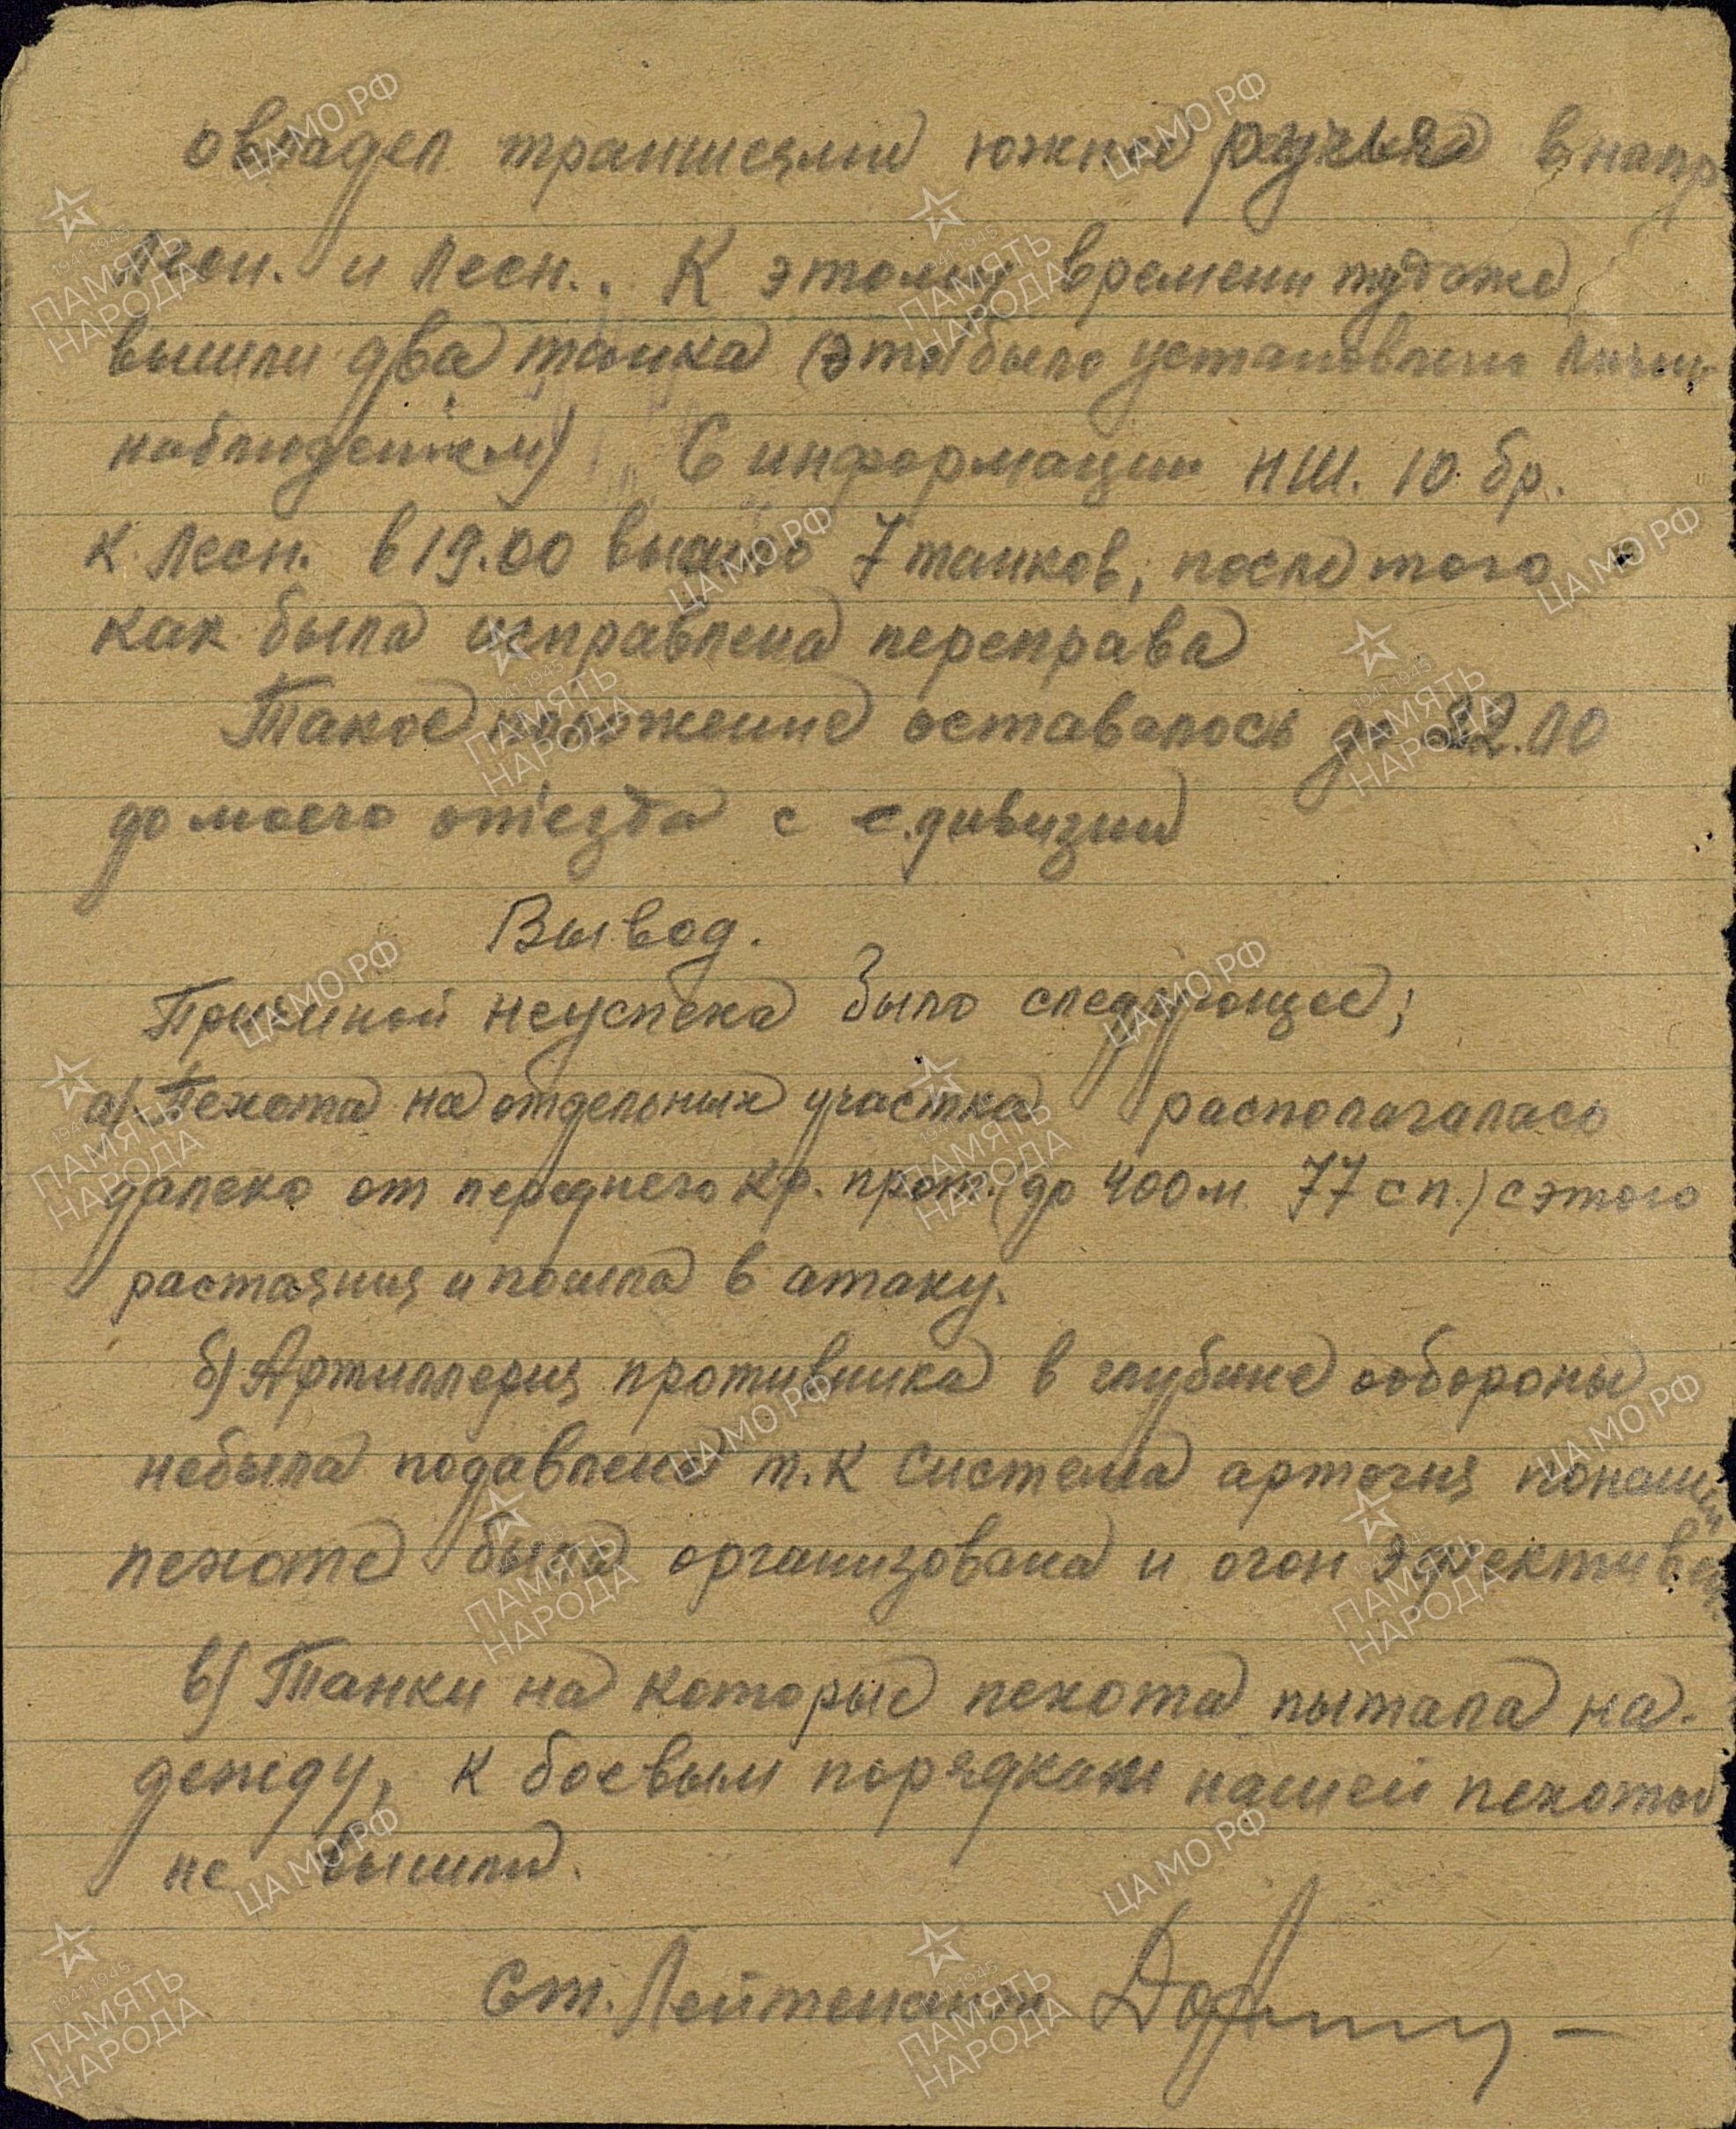 овладел траншеями южнее ручья в напр
Лесн. и Лесн.. К этому времени тудоже
вышли два танка (это было установлено личн.
наблюдением) С информации НШ. 10 бр.
к Лесн. в 19.00 вышло 7 танков, после того
как была исправлена переправа
Такое положение оставалось до 22.00
до моего отъезда с с.дивизии
Вывод.
Причиной неуспеха было следующее;
а) Пехота на отдельных участка располагалась
далеко от переднего кр. прот. (до 400 м 77 сп.) с этого
растаяния и пошла в атаку.
б) Артиллерия противника в глубине обороны
небыла подавлена т.к система артогня понашей
пехоте была организована и огон эфективен.
в) Танки на которые пехота пытала на-
дежду, к боевым порядкам нашей пехоты
не вышли.
Ст. Лейтенант
ЦАМО РФ
1941-1945
ПАМЯТЬ
НАРОДА